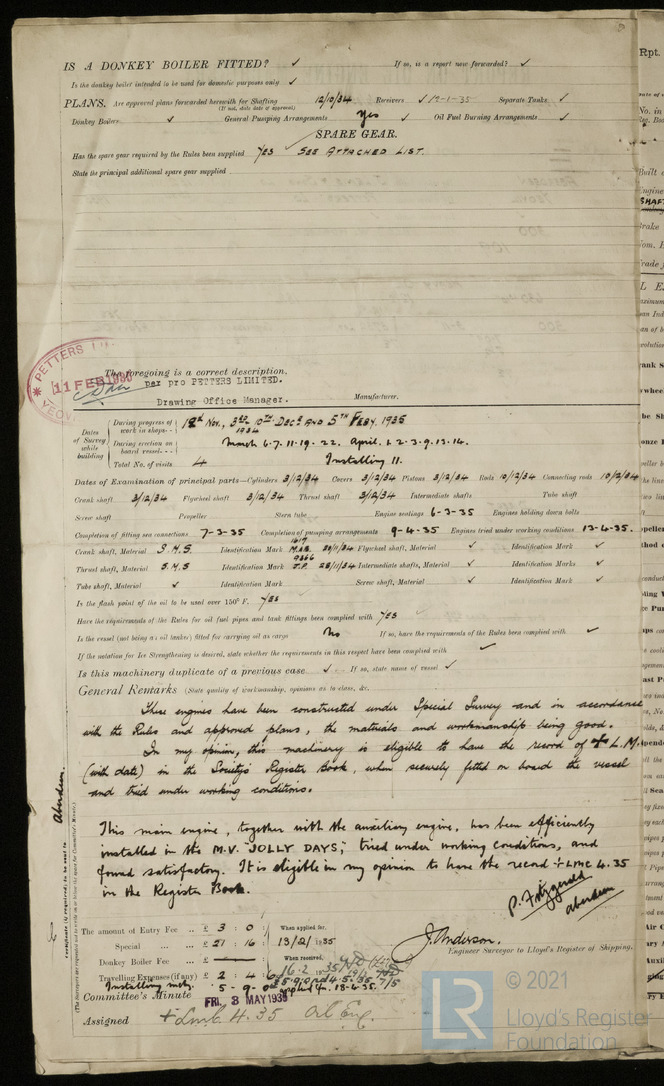 IS A DONKEY BOILER FITTED? ✓ If so, is a report now forwarded? ✓
Is the donkey boiler intended to be used for domestic purposes only ✓
PLANS. Are approved plans forwarded herewith for Shafting 12/10/34 Receivers ✓ 12-1-35 Separate Tanks ✓
(If not, state date of approval)
Donkey Boilers ✓ General Pumping Arrangements Yes ✓ Oil Fuel Burning Arrangements ✓
SPARE GEAR.
Has the spare gear required by the Rules been supplied YES SEE ATTACHED LIST.
State the principal additional spare gear supplied
PETTERS
11 FEB 1935
YEOV
The foregoing is a correct description,
per pro PETTERS LIMITED.
Drawing Office Manager. Manufacturer.
Dates of Survey while building
During progress of work in shops - - Nov., 3RD 10TH DECR 1934 AND 5TH FEBY. 1935
During erection on board vessel - - - March 6.7.11.19.22. April. 1.2.3.9.13.14.
Total No. of visits 4 Installing 11.
Dates of Examination of principal parts—Cylinders 3/12/34 Covers 3/12/34 Pistons 3/12/34 Rods 10/12/34 Connecting rods 10/12/34
Crank shaft 3/12/34 Flywheel shaft 3/12/34 Thrust shaft 3/12/34 Intermediate shafts Tube shaft
Screw shaft Propeller Stern tube Engine seatings 6-3-35 Engines holding down bolts
Completion of fitting sea connections 7-3-35 Completion of pumping arrangements 9-4-35 Engines tried under working conditions 13-4-35.
Crank shaft, Material S.M.S Identification Mark Flywheel shaft, Material ✓ Identification Mark ✓
Thrust shaft, Material S.M.S Identification Mark J.P. 28/11/34 Intermediate shafts, Material ✓ Identification Marks ✓
Tube shaft, Material ✓ Identification Mark Screw shaft, Material ✓ Identification Mark ✓
Is the flash point of the oil to be used over 150° F. YES
Have the requirements of the Rules for oil fuel pipes and tank fittings been complied with YES
Is the vessel (not being an oil tanker) fitted for carrying oil as cargo No If so, have the requirements of the Rules been complied with ✓
If the notation for Ice Strengthening is desired, state whether the requirements in this respect have been complied with ✓
Is this machinery duplicate of a previous case ✓ If so, state name of vessel ✓
General Remarks (State quality of workmanship, opinions as to class, &c.
These engines have been constructed under Special Survey and in accordance
with the Rules and approved plans, the materials and workmanship being good.
In my opinion, this machinery is eligible to have the record of + L.M.
(with date) in the Society's Register Book, when securely fitted on board the vessel
and tried under working conditions.
This main engine, together with the auxiliary engine, has been efficiently
installed in the M.V. "JOLLY DAYS," tried under working conditions, and
found satisfactory. It is eligible in my opinion to have the record +LMC 4.35
in the Register Book.
P. Fitzgerald
Aberdeen
The amount of Entry Fee .. £ 3 : 0 : When applied for,
Special ... ... £ 21 : 16 : 13/2/1935
Donkey Boiler Fee ... £ When received,
Travelling Expenses (if any) £ 2 : 4 : 16.2.1935
Installing 5. - 9. 0
J. Anderson.
Engineer Surveyor to Lloyd's Register of Shipping.
Committee's Minute FRI. 3 MAY 1935
Assigned + Lmc 4.35 Oil Eng.
Aberdeen.
© 2021
LR
Lloyd's Register
Foundation
Rpt.